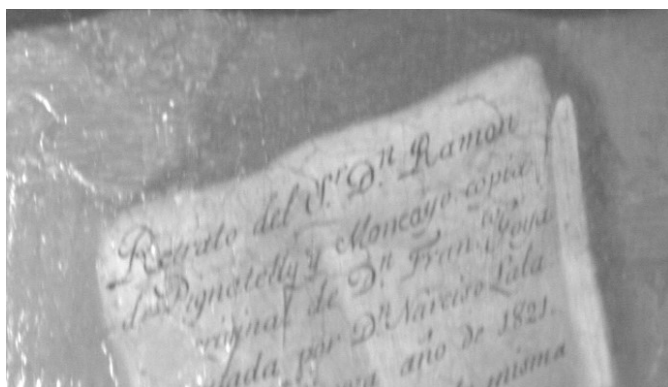 Retrato del S.r D.n Ramon
de Pignatelly y Moncayo copia
original de D.n Fran.co Goya
por D.n Narciso Lala
año de 1821.
misma